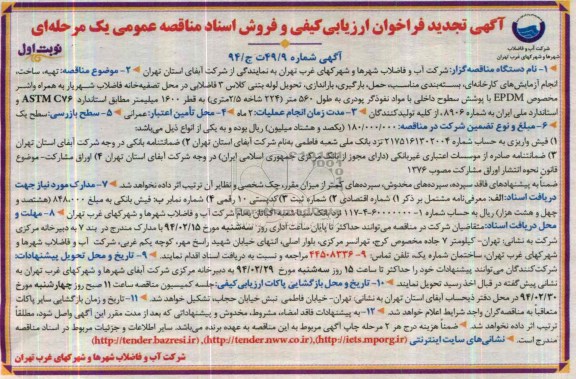 آگهی تجدید فراخوان ارزیابی کیفی و فروش اسناد مناقصه عمومی یک مرحله‌ای
نوبت اول
شرکت آب و فاضلاب
شهرها و شهرکهای غرب تهران
آگهی شماره ۴۹/۹ت ج/۹۴
۱- نام دستگاه مناقصه‌گزار: شرکت آب و فاضلاب شهرها و شهرکهای غرب تهران به نمایندگی از شرکت آبفای استان تهران ۲- موضوع مناقصه: تهیه، ساخت،
انجام آزمایش‌های کارخانه‌ای، بسته‌بندی مناسب، حمل، بارگیری، باراندازی، تحویل لوله بتنی کلاس ۳ فاضلابی در محل تصفیه‌خانه فاضلاب شهریار به همراه واشر
مخصوص EPDM با پوشش سطوح داخلی با مواد نفوذگر پودری به طول ۵۶۰ متر (۲۲۴ شاخه ۲/۵متری) به قطر ۱۶۰۰ میلیمتر مطابق استاندارد ASTM C76 و
استاندارد ملی ایران به شماره ۸۹۰۶، از کلیه تولیدکنندگان ۳- مدت زمان انجام عملیات: ۲ ماه ۴- محل تأمین اعتبار: عمرانی ۵- سطح بازرسی: سطح یک
۶- مبلغ و نوع تضمین شرکت در مناقصه: ۱۸۰/۰۰۰/۰۰۰ (یکصد و هشتاد میلیون) ریال بوده و به یکی از انواع ذیل می‌باشد:
۱) فیش واریزی به حساب شماره ۲۱۷۵۱۶۱۳۰۲۰۰۴ نزد بانک ملی شعبه فاطمی به‌نام شرکت آبفای استان تهران ۲) ضمانتنامه بانکی در وجه شرکت آبفای استان تهران
۳) ضمانتنامه صادره از موسسات اعتباری غیربانکی (دارای مجوز از بانک مرکزی جمهوری اسلامی ایران) در وجه شرکت آبفای استان تهران ۴) اوراق مشارکت- موضوع
قانون نحوه انتشار اوراق مشارکت مصوب ۱۳۷۶
ضمناً به پیشنهادهای فاقد سپرده، سپرده‌های مخدوش، سپرده‌های کمتر از میزان مقرر، چک شخصی و نظایر آن ترتیب اثر داده نخواهد شد. ۷- مدارک مورد نیاز جهت
دریافت اسناد: الف: معرفی‌نامه مشتمل بر ذکر ۱) شماره اقتصادی ۲) شماره ثبت ۳) کدپستی ۱۰ رقمی ۴) شماره نمابر ب: فیش بانکی به مبلغ ۸۴۸۰۰۰ (هشتصد و
چهل و هشت هزار) ریال به حساب شماره به‌نام شرکت آب و فاضلاب شهرها و شهرکهای غرب تهران ۸- مهلت و
محل دریافت اسناد: متقاضیان شرکت در مناقصه می‌توانند حداکثر تا پایان ساعت اداری روز سه‌شنبه مورخ ۹۴/۰۲/۱۵ با مدارک مندرج در بند ۷ به دبیرخانه مرکزی
شرکت به نشانی: تهران- کیلومتر ۷ جاده مخصوص کرج، تهرانسر مرکزی، بلوار اصلی، انتهای خیابان شهید راسخ مهر، کوچه یکم غربی، شرکت آب و فاضلاب شهرها و
شهرکهای غرب تهران، ساختمان شماره یک، تلفن تماس: ۹- ۴۴۵۰۸۳۳۶ مراجعه و نسبت به دریافت اسناد اقدام نمایند. ۹- تاریخ و محل تحویل پیشنهادات:
شرکت‌کنندگان می‌توانند پیشنهادات خود را حداکثر تا ساعت ۱۵ روز سه‌شنبه مورخ ۹۴/۰۲/۲۹ به دبیرخانه مرکزی شرکت آبفای شهرها و شهرکهای غرب تهران به
نشانی پیش‌گفته در قبال اخذ رسید تحویل نمایند ۱۰- تاریخ و محل بازگشایی پاکات ارزیابی کیفی: جلسه کمیسیون مناقصه ساعت ۱۱ صبح روز چهارشنبه مورخ
۹۴/۰۲/۳۰ در محل دفتر ذیحساب آبفای استان تهران به نشانی: تهران- خیابان فاطمی نبش خیابان حجاب، تشکیل خواهد شد. ۱۱- تاریخ و زمان بازگشایی سایر پاکات
متعاقباً به مناقصه‌گران واجد شرایط اعلام خواهد شد. ۱۲- به پیشنهادات فاقد امضاء، مشروط، مخدوش و پیشنهاداتی که بعد از مدت مقرر این آگهی واصل شود، مطلقاً
ترتیب اثر داده نخواهد شد. ضمناً هزینه درج هر ۲ مرحله چاپ آگهی مربوط به این مناقصه به عهده برنده می‌باشد. سایر اطلاعات و جزئیات مربوط در اسناد مناقصه
مندرج است. نشانی‌های سایت اینترنتی (http://iets.mporg.ir)، (http://tender.nww.co.ir)، (http://tender.bazresi.ir)
شرکت آب و فاضلاب شهرها و شهرکهای غرب تهران